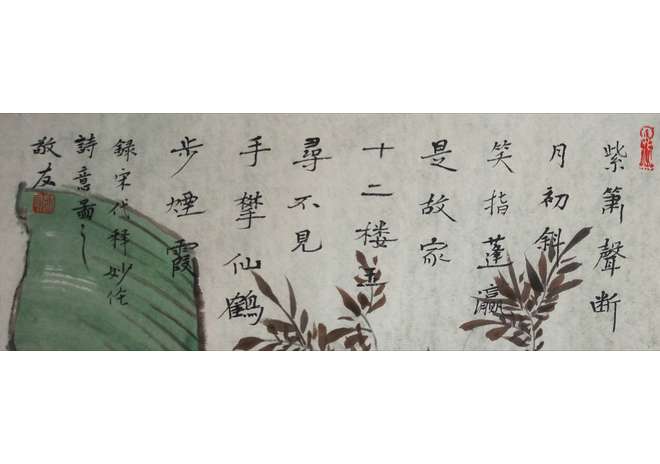 紫簫聲断
月初斜
笑指蓬瀛
是故家
十二楼
尋不見
手攀仙鶴
步煙霞
録宋代释妙
詩意畵之
敬友